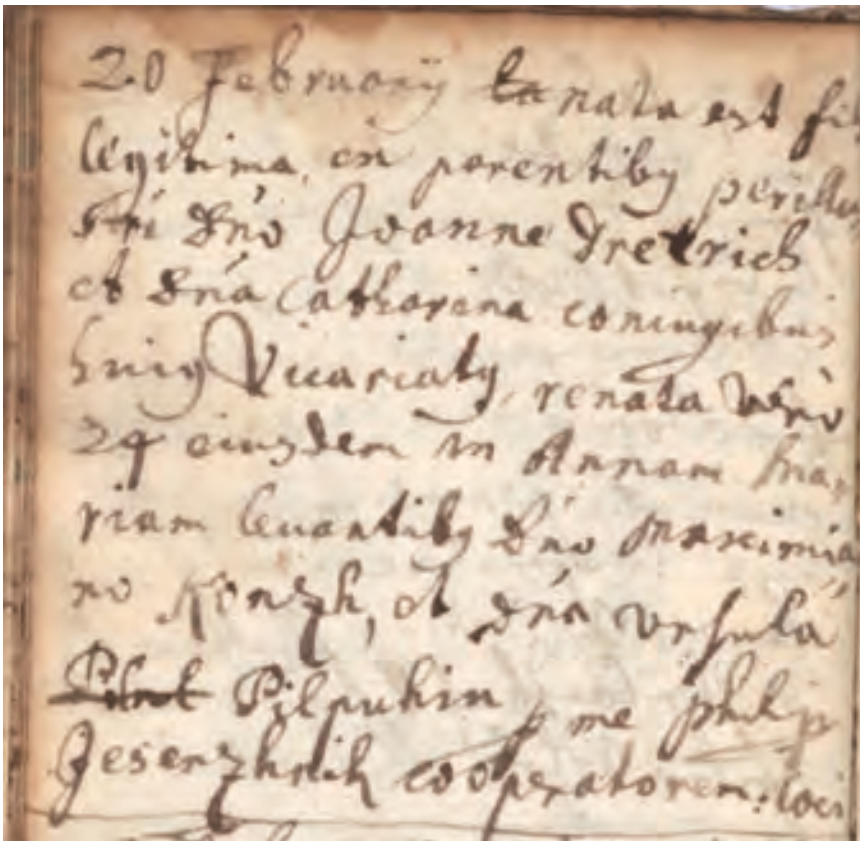 20 February nata est fi
legitima, ex parentibg perillu
stri Dno Joanne Dietrich
et Dna Catharina coniugibus
huig Vicariatg, renata vero
24 eiusdem in Annam Ma,
riam levantibg Dno Maximia
no Konzh, et Dna Vrsula
Pilpukin p me philip
Jeserzhnik cooperatorem loci